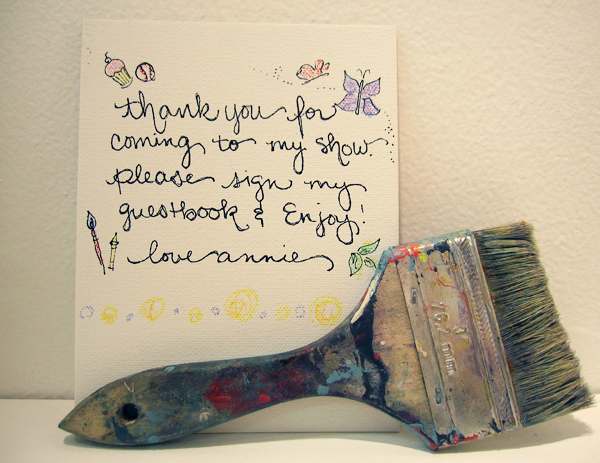 thank you for
coming to my show.
please sign my
guestbook & Enjoy!
love annie